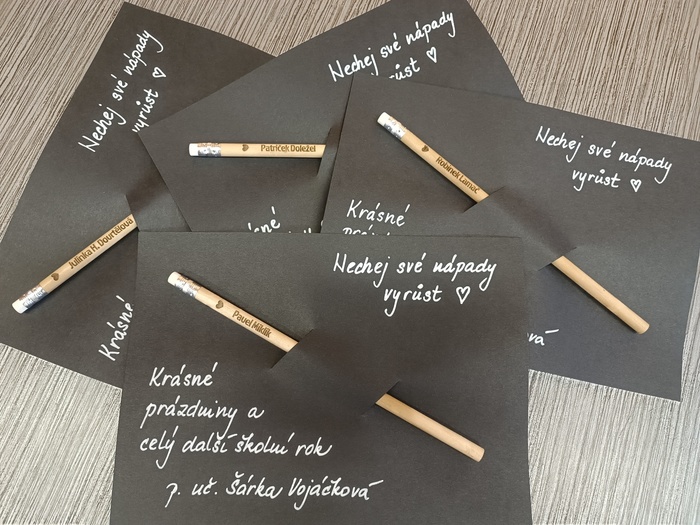 Nechej své nápady
vyrůst ♡
Julinka H. Dourtélová
Krásné
Nechej své nápady
růst ♡
Patriček Doležel
sné
Nechej své nápady
vyrůst ♡
Robínek Lamač
Krásné
práz
ová
Nechej své nápady
vyrůst ♡
Pavel Mildik
Krásné
prázdniny a
celý další školní rok
p. uč. Šárka Vojáčková